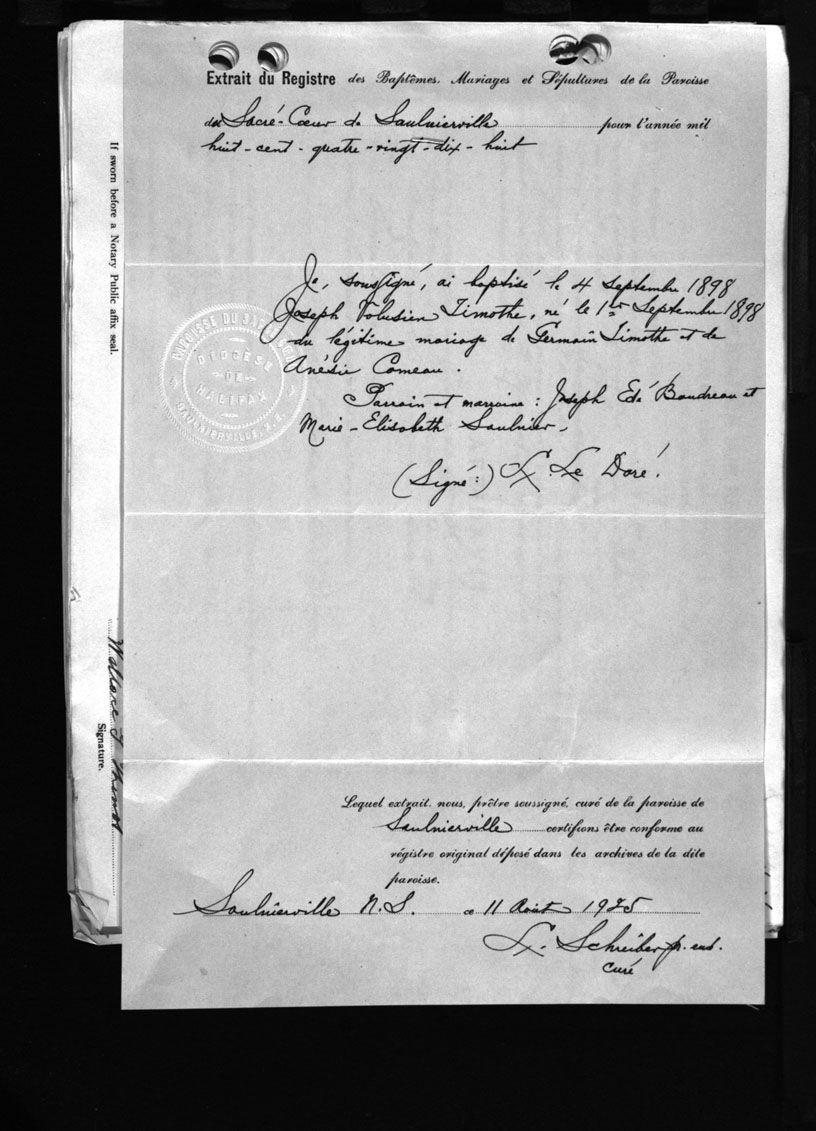 Extrait du Registre des Baptêmes, Mariages et Sépultures de la Paroisse
du Sacré-Cœur de Saulnierville pour l'année mil
huit-cent-quatre-vingt-dix-huit
Je, soussigné, ai baptisé le 4 Septembre 1898
Joseph Volusien Timothe, né le 1er Septembre 1898
du légitime mariage de Germain Timothe et de
Anésie Comeau.
Parrain et marraine : Joseph Edé Boudreau et
Marie-Elisabeth Saulnier.
(Signé:) L. Le Doré.
PAROISSE DU SACRÉ CŒUR
DIOCÈSE
DE
HALIFAX
SAULNIERVILLE, N.S.
Lequel extrait, nous, prêtre soussigné, curé de la paroisse de
Saulnierville certifions être conforme au
régistre original déposé dans les archives de la dite
paroisse.
Saulnierville N.S. ce 11 Août 1925
L. Schreiber p. eud.
curé
If sworn before a Notary Public affix seal.
Signature.